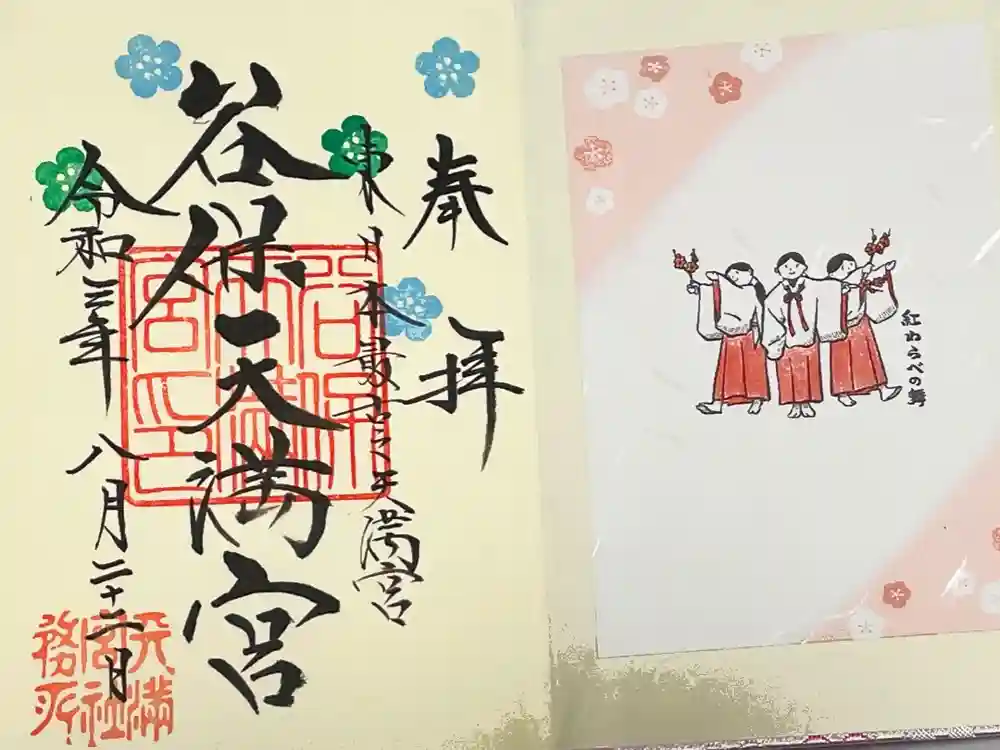 奉拝
東日本最古之天満宮
谷保天満宮
令和三年八月二十二日
谷保
天満
宮印
天満
宮社
務所
紅わらべの舞